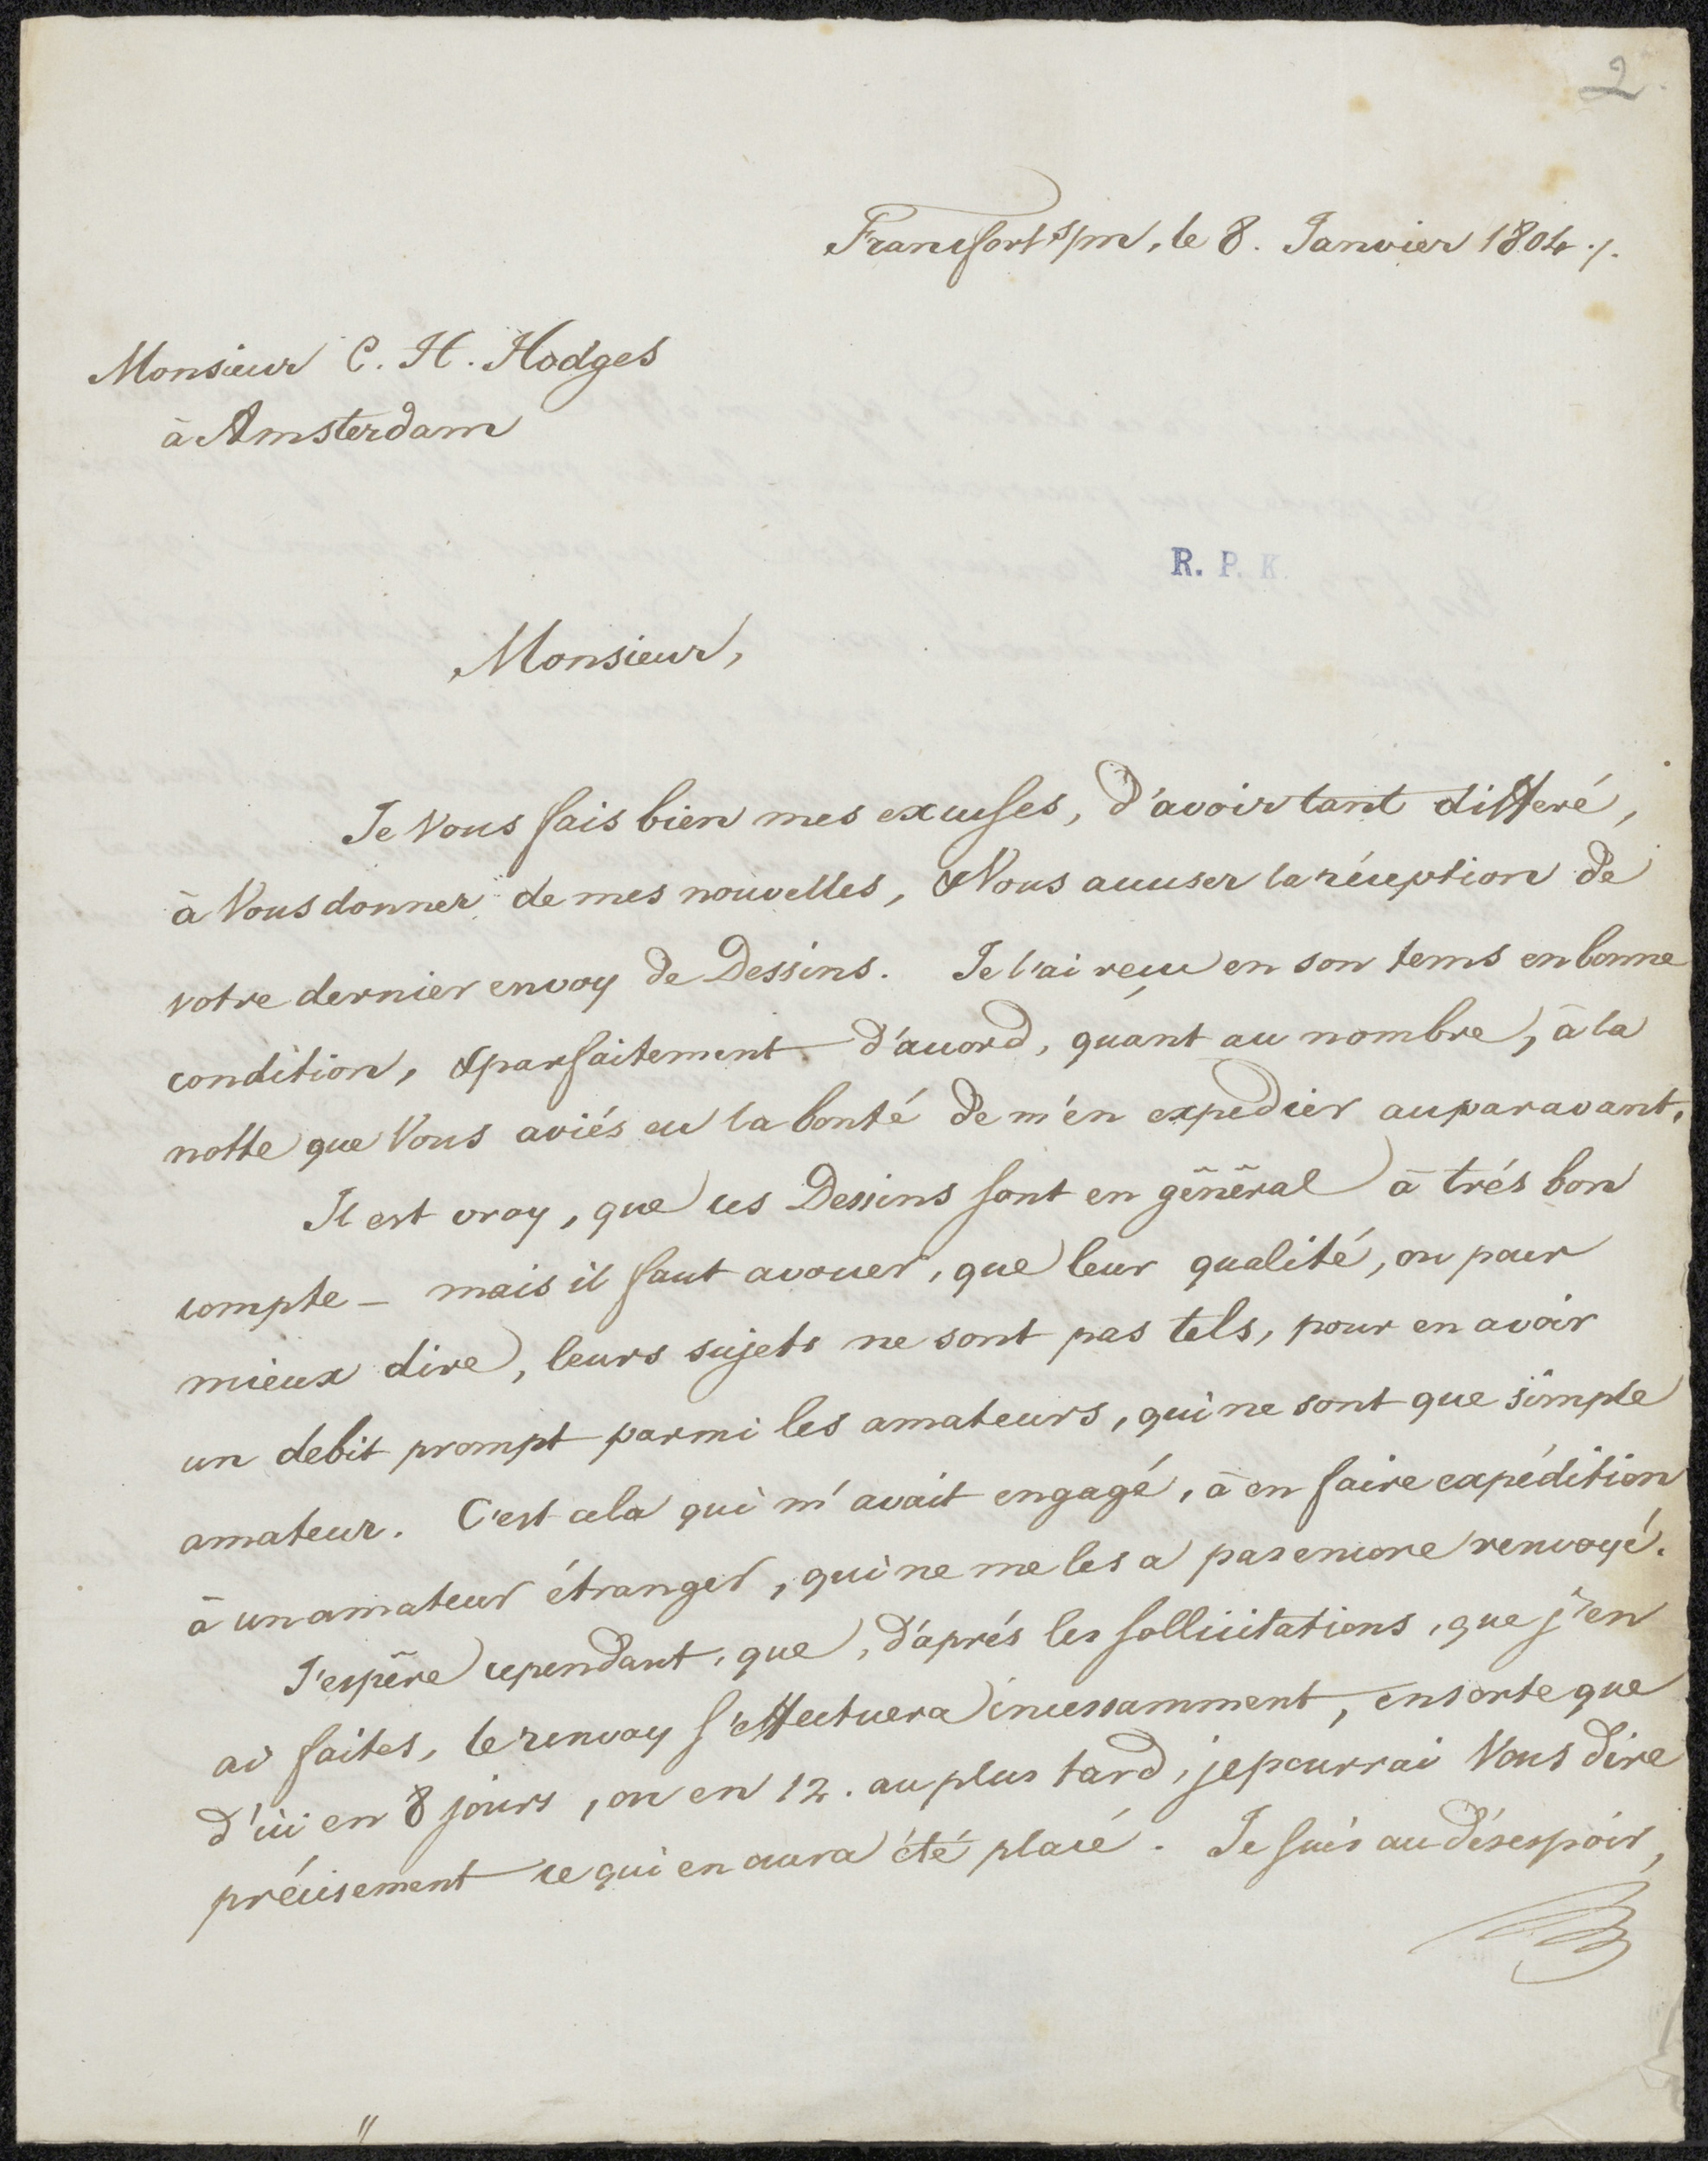 2.
Francfort s/m, le 8. Janvier 1804 ./.
Monsieur C. H. Hodges
à Amsterdam
R. P. K.
Monsieur,
Je Vous fais bien mes excuses, d'avoir tant differé,
à Vous donner de mes nouvelles, & Vous accuser la réception de
votre dernier envoy de Dessins. Je l'ai reçu en son tems en bonne
condition, & parfaitement d'accord, quant au nombre, à la
notte que Vous aviés eu la bonté de m'en expedier auparavant.
Il est vray, que ces Dessins sont en général à trés bon
compte - mais il faut avouer, que leur qualité, ou pour
mieux dire, leurs sujets ne sont pas tels, pour en avoir
un debit prompt parmi les amateurs, qui ne sont que simple
amateur. C'est cela qui m'avait engagé, à en faire expédition
à un amateur étranger, qui ne me les a pas encore renvoyé.
J'espère cependant, que, d'aprés les sollicitations, que j'en
ai faites, le renvoy s'effectuera incessamment, ensorte que
d'ici en 8 jours, ou en 12. au plus tard, je pourrai Vous dire
précisement ce qui en aura été placé. Je suis au désespoir,